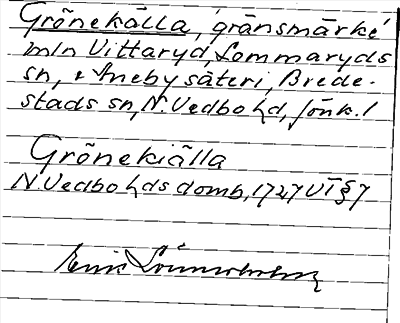 Grönekälla, gränsmärke
mln Vittaryd, Lommaryds
sn, & Aneby säteri, Brede-
stads sn, N. Vedbo hd, Jönk. l
Grönekiälla
N. Vedbo hds domb, 1727 VT § 7